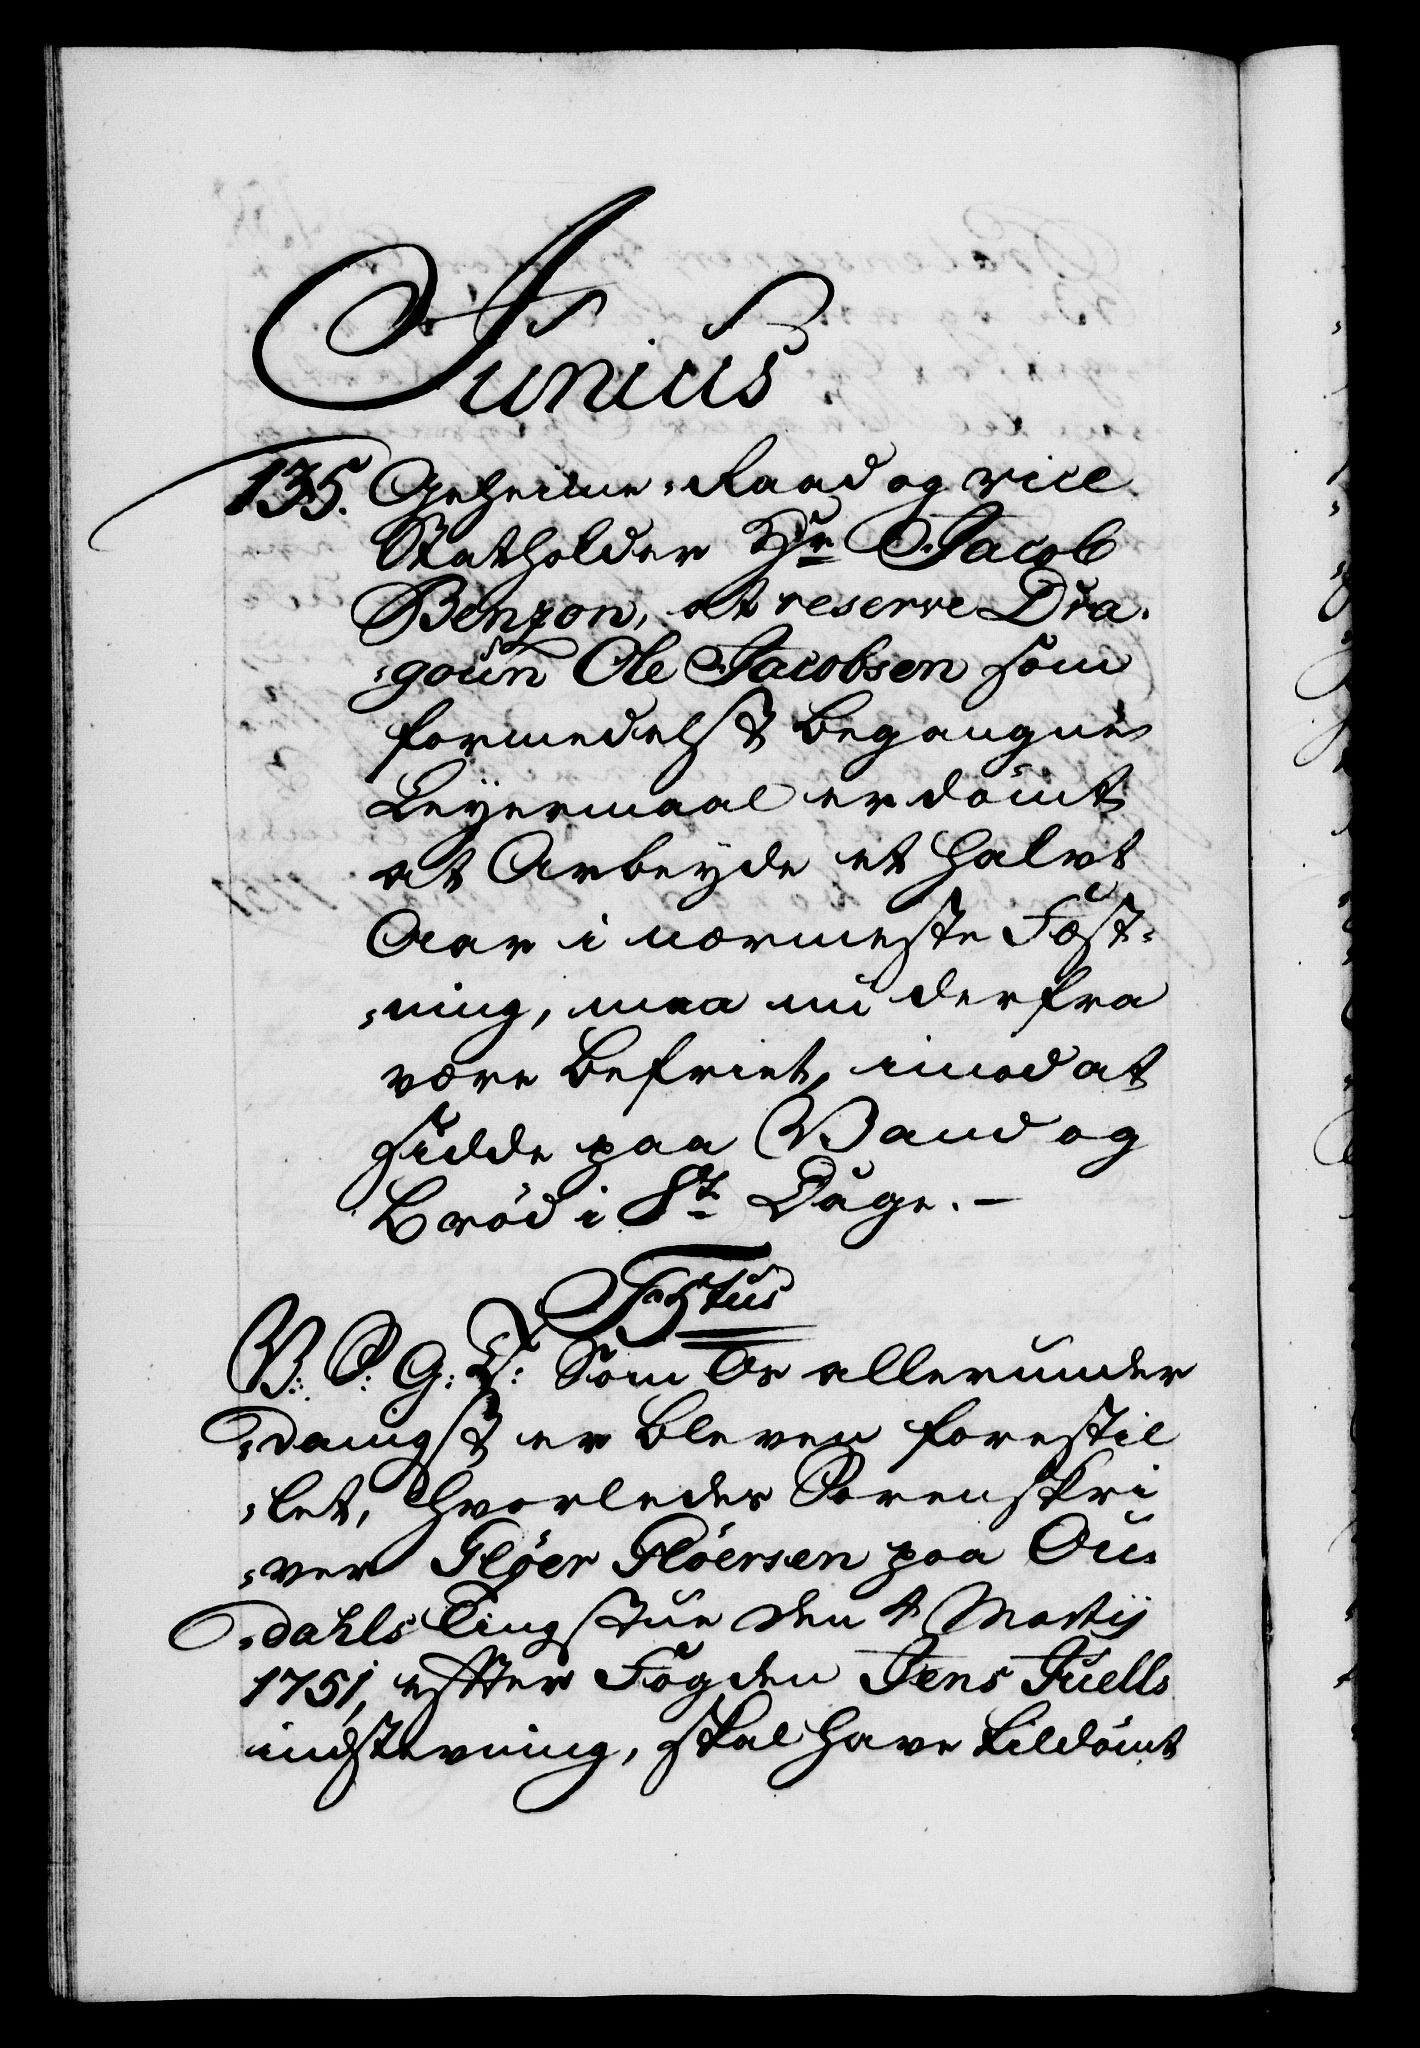 Junius
135. Geheime-Raad og vice
Statholder Hr Jacob
Benzon, at reserve Dra-
-goun Ole Jacobsen som
formedelst begangne
Leyermaal er dömt
at Arbeyde et halvt
Aar i nærmeste Fæst-
-ning, maa nu derfra
være befriet, imod at
sidde paa Vand og
Bröd i 8te Dage.-
V: S: G: T: Som Os allerunder
-danigst er bleven forestil
-let, hvorledes Sorenskri
-ver Flöer Flöersen paa Ou-
-dahls Tingstue den 4 Martij
1751, efter Fogden Jens Juells
indstevning, skal have tildömt